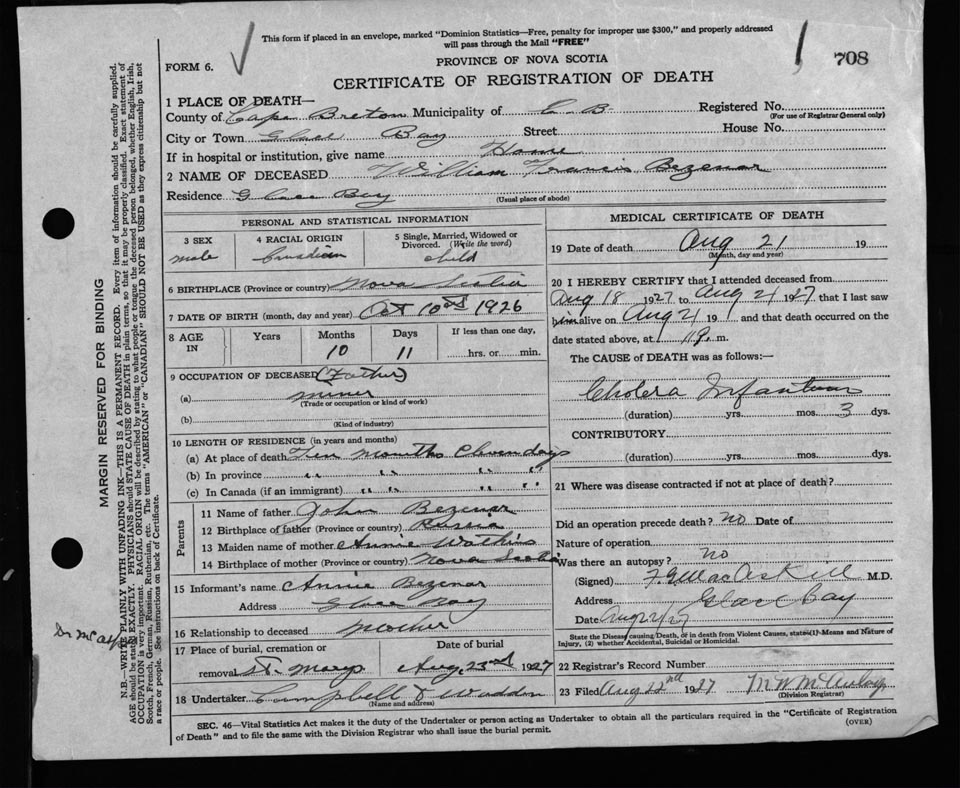 This form if placed in an envelope, marked "Dominion Statistics—Free, penalty for improper use $300," and properly addressed
will pass through the Mail "FREE"
708
FORM 6.
PROVINCE OF NOVA SCOTIA
CERTIFICATE OF REGISTRATION OF DEATH
1 PLACE OF DEATH—
County of Cape Breton Municipality of C. B Registered No.
(For use of Registrar General only)
City or Town Glace Bay Street House No.
If in hospital or institution, give name Home
2 NAME OF DECEASED William Francis Bezenar
Residence Glace Bay (Usual place of abode)
PERSONAL AND STATISTICAL INFORMATION
3 SEX 4 RACIAL ORIGIN 5 Single, Married, Widowed or Divorced. (Write the word)
male Canadian child
6 BIRTHPLACE (Province or country) Nova Scotia
7 DATE OF BIRTH (month, day and year) Oct 10 1926
8 AGE IN Years Months Days If less than one day,
10 11 hrs. or min.
9 OCCUPATION OF DECEASED (Father)
(a) miner
(Trade or occupation or kind of work)
(b)
(Kind of industry)
10 LENGTH OF RESIDENCE (in years and months)
(a) At place of death Ten Months Eleven days
(b) In province " " " "
(c) In Canada (if an immigrant) " " " "
Parents
11 Name of father John Bezenar
12 Birthplace of father (Province or country) Russia
13 Maiden name of mother Annie Watkins
14 Birthplace of mother (Province or country) Nova Scotia
15 Informant's name Annie Bezenar
Address Glace Bay
16 Relationship to deceased Mother
17 Place of burial, cremation or removal Date of burial
St. Marys Aug. 23rd 1927
18 Undertaker Campbell & Wadden
(Name and address)
MEDICAL CERTIFICATE OF DEATH
19 Date of death Aug 21 19
(Month, day and year)
20 I HEREBY CERTIFY that I attended deceased from
Aug 18 1927 to Aug 21 1927 that I last saw
him alive on Aug 21 19 and that death occurred on the
date stated above, at m.
The CAUSE of DEATH was as follows:—
Cholera Infantum
(duration) yrs. mos. 3 dys.
CONTRIBUTORY
(duration) yrs. mos. dys.
21 Where was disease contracted if not at place of death?
Did an operation precede death? no Date of
Nature of operation
Was there an autopsy? no
(Signed) MacAskill M.D.
Address Glace Bay
Date Aug 21/27
State the Disease causing Death, or in death from Violent Causes, state (1) Means and Nature of
Injury, (2) whether Accidental, Suicidal or Homicidal.
22 Registrar's Record Number
23 Filed Aug 22nd 1927 McAulay
(Division Registrar)
SEC. 46—Vital Statistics Act makes it the duty of the Undertaker or person acting as Undertaker to obtain all the particulars required in the "Certificate of Registration
of Death" and to file the same with the Division Registrar who shall issue the burial permit. (OVER)
MARGIN RESERVED FOR BINDING
N.B.—WRITE PLAINLY WITH UNFADING INK—THIS IS A PERMANENT RECORD. Every item of information should be carefully supplied.
AGE should be stated EXACTLY. PHYSICIANS should STATE CAUSE OF DEATH in plain terms, so that it may be properly classified. Exact statement of
OCCUPATION is very important. RACIAL ORIGIN will be described by stating to what people or tongue the deceased person belonged, whether English, Irish,
Scotch, French, German, Russian, Ruthenian, etc. The terms "AMERICAN" or "CANADIAN" SHOULD NOT BE USED as they express citizenship but not
a race or people. See instructions on back of Certificate.